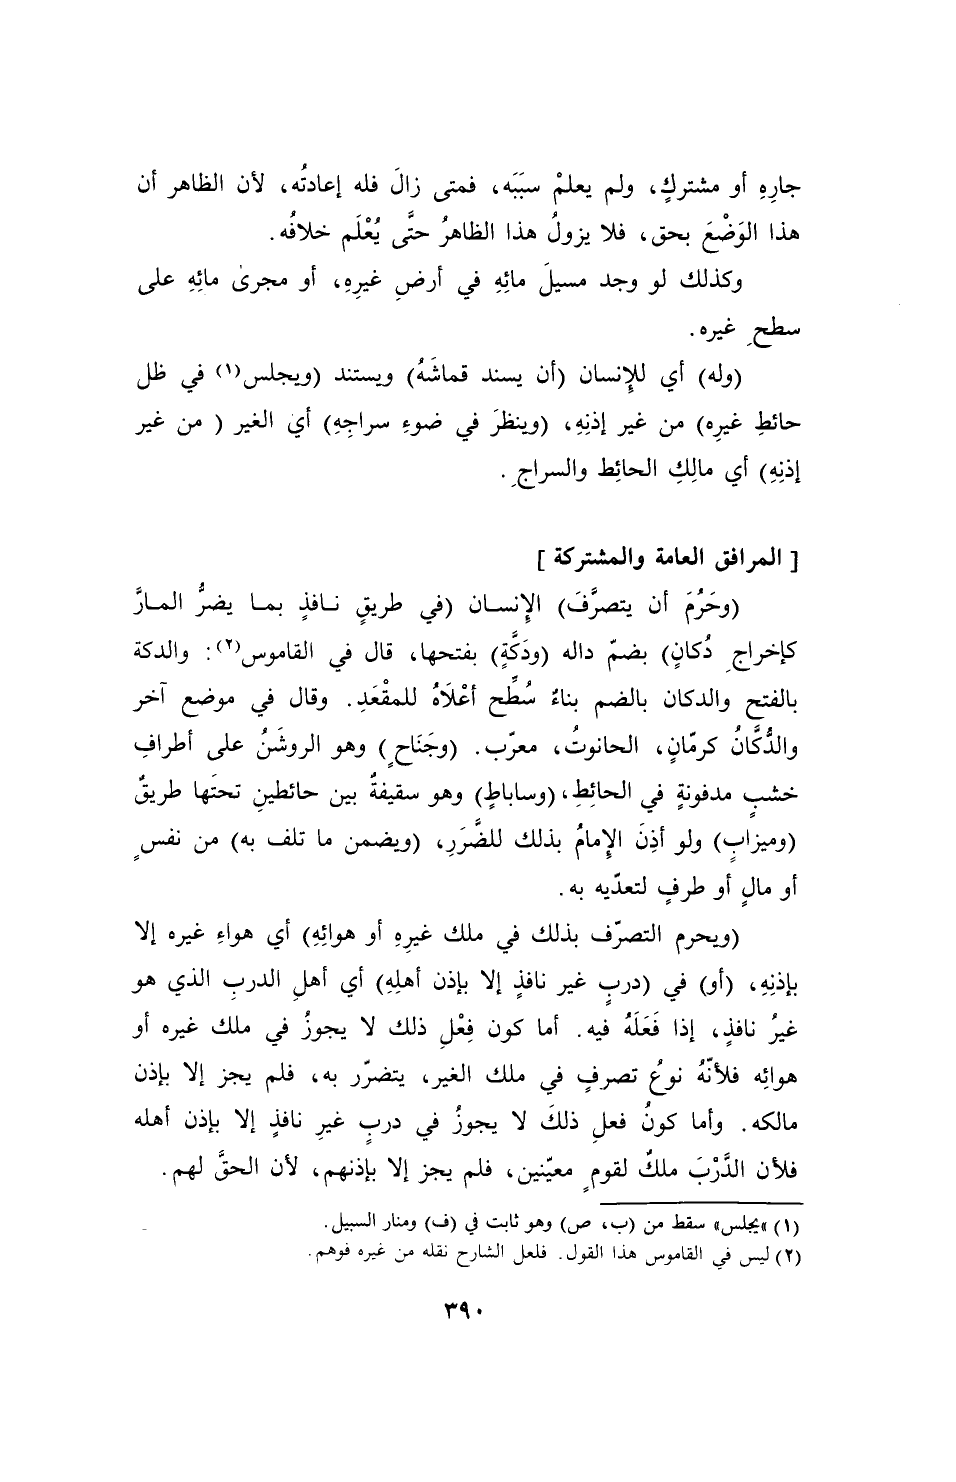 جارِهِ أو مشتركٍ، ولم يعلمْ سبَبَه، فمتى زالَ فله إعادتُه، لأن الظاهر أن
هذا الوَضْعَ بحق، فلا يزولُ هذا الظاهرُ حتَّى يُعْلَم خلافُه.
وكذلك لو وجد مسيلَ مائِهِ في أرضِ غيرِهِ، أو مجرىٰ مائِهِ على
سطحِ غيره.
(وله) أي للإِنسان (أن يسند قماشَهُ) ويستند (ويجلس(١) في ظل
حائطِ غيرِه) من غير إذنِهِ، (وينظرَ في ضوءِ سراجِهِ) أي الغير ( من غير
إذنِهِ) أي مالِكِ الحائِط والسراجِ.
[ المرافق العامة والمشتركة ]
(وحَرُمَ أن يتصرَّفَ) الإِنسان (في طريقٍ نافذٍ بما يضرُّ المارَّ
كإخراجِ دُكانٍ) بضمّ داله (ودَكَّةٍ) بفتحها، قال في القاموس(٢): والدكة
بالفتح والدكان بالضم بناءٌ سُطِّح أعْلَاهُ للمقْعَدِ. وقال في موضع آخر
والدُّكَّانُ كرمّانٍ، الحانوتُ، معرّب. (وجَنَاحٍ) وهو الروشَنُ على أطرافِ
خشبٍ مدفونةٍ في الحائِطِ، (وساباطٍ) وهو سقيفةٌ بين حائطينِ تحتَها طريقٌ
(وميزابٍ) ولو أذِنَ الإِمامُ بذلك للضَّرَرِ، (ويضمن ما تلف به) من نفسٍ
أو مالٍ أو طرفٍ لتعدّيه به.
(ويحرم التصرّف بذلك في ملك غيرِهِ أو هوائِهِ) أي هواءِ غيره إلا
بإذنِهِ، (أو) في (دربٍ غير نافذٍ إلا بإذن أهلِهِ) أي أهلِ الدربِ الذي هو
غيرُ نافذٍ، إذا فَعَلَهُ فيه. أما كون فِعْلِ ذلك لا يجوزُ في ملك غيره أو
هوائِه فلأنّهُ نوعُ تصرفٍ في ملك الغير، يتضرّر به، فلم يجز إلا بإذن
مالكه. وأما كونُ فعلِ ذلكَ لا يجوزُ في دربٍ غيرِ نافذٍ إلا بإذن أهله
فلأن الدَّرْبَ ملكٌ لقومٍ معيّنين، فلم يجز إلا بإذنهم، لأن الحقَّ لهم.
(١) «يجلس» سقط من (ب، ص) وهو ثابت في (ف) ومنار السبيل.
(٢) ليس في القاموس هذا القول. فلعل الشارح نقله من غيره فوهم.
٣٩٠